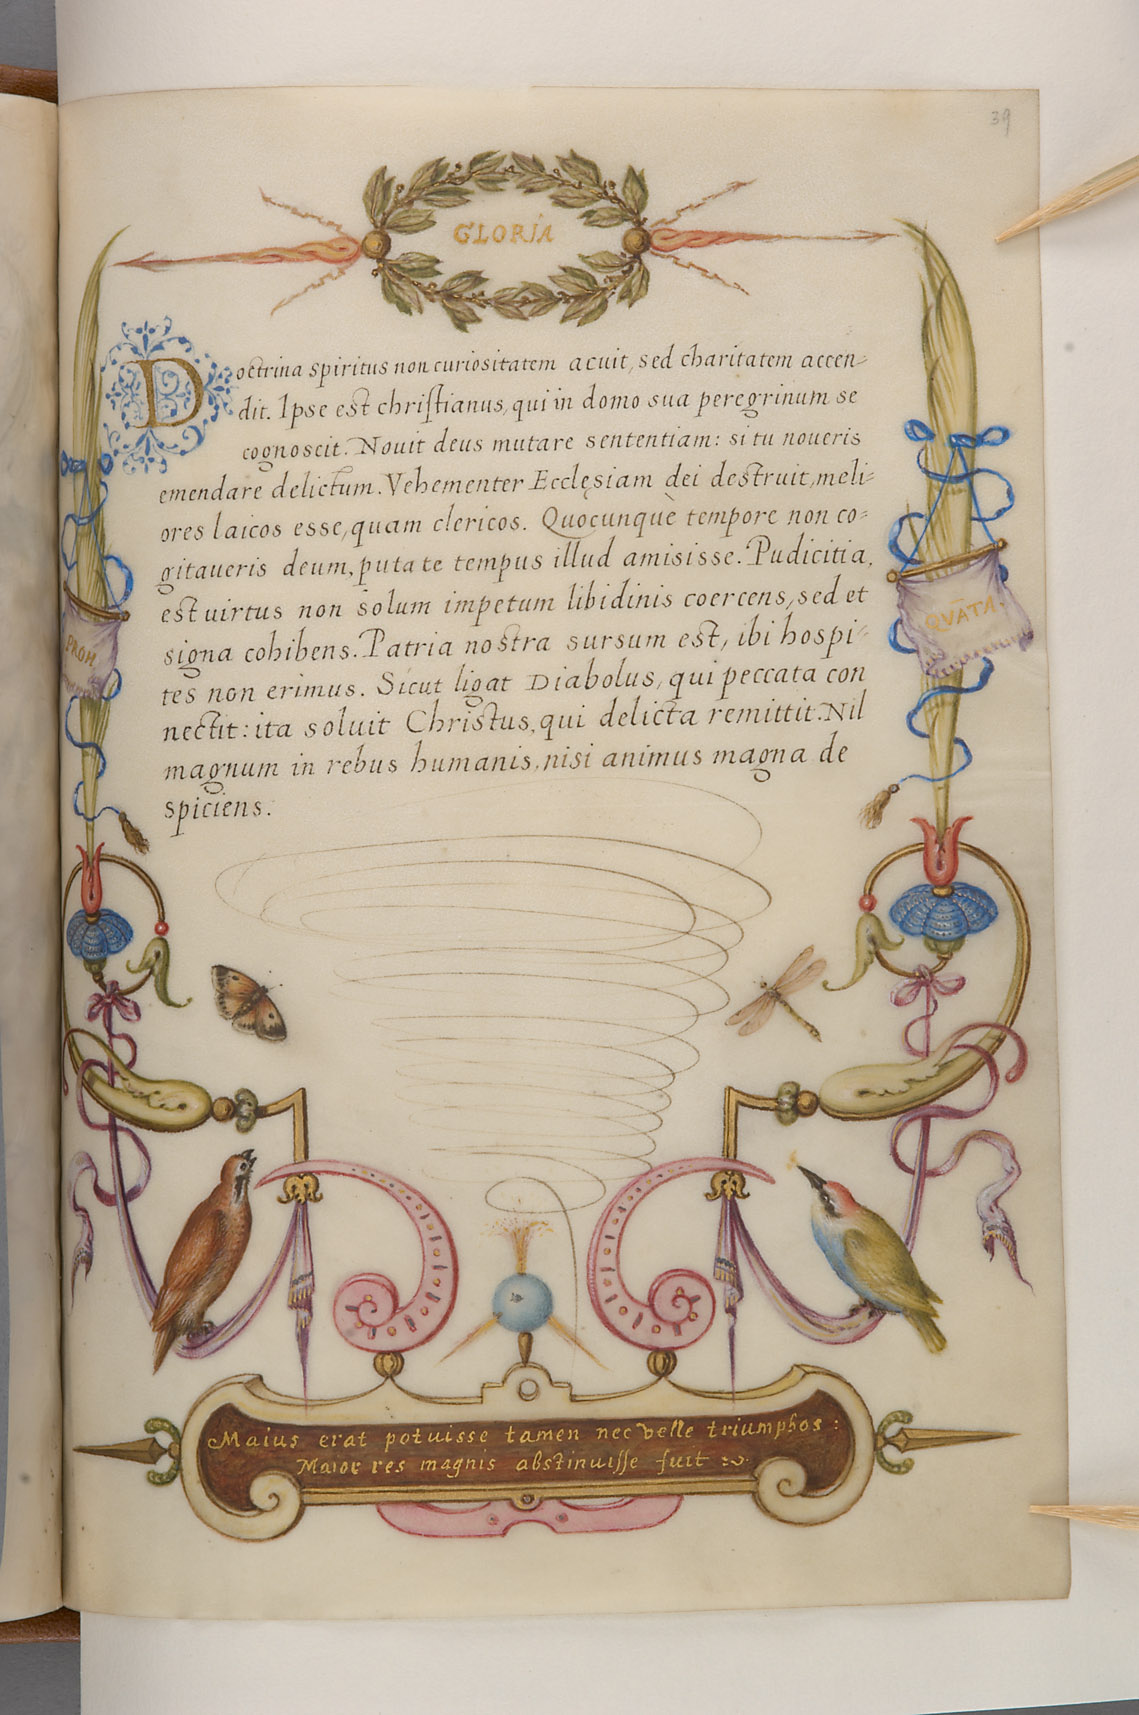 39
GLORIA
Doctrina spiritus non curiositatem acuit, sed charitatem accen-
dit. Ipse est christianus, qui in domo sua peregrinum se
cognoscit. Novit deus mutare sententiam: si tu noueris
emendare delictum. Vehementer Ecclęsiam dei destruit, meli-
ores laicos esse, quam clericos. Quocunquè tempore non co-
gitaueris deum, puta te tempus illud amisisse. Pudicitia,
est uirtus non solum impetum libidinis coercens, sed et
signa cohibens. Patria nostra sursum est, ibi hospi-
tes non erimus. Sicut ligat Diabolus, qui peccata con
nectit: ita soluit Christus, qui delicta remittit. Nil
magnum in rebus humanis, nisi animus magna de
spiciens.
PROM.
QVĀTA.
Maius erat potuisse tamen nec velle triumphos:
Maior res magnis abstinuisse fuit